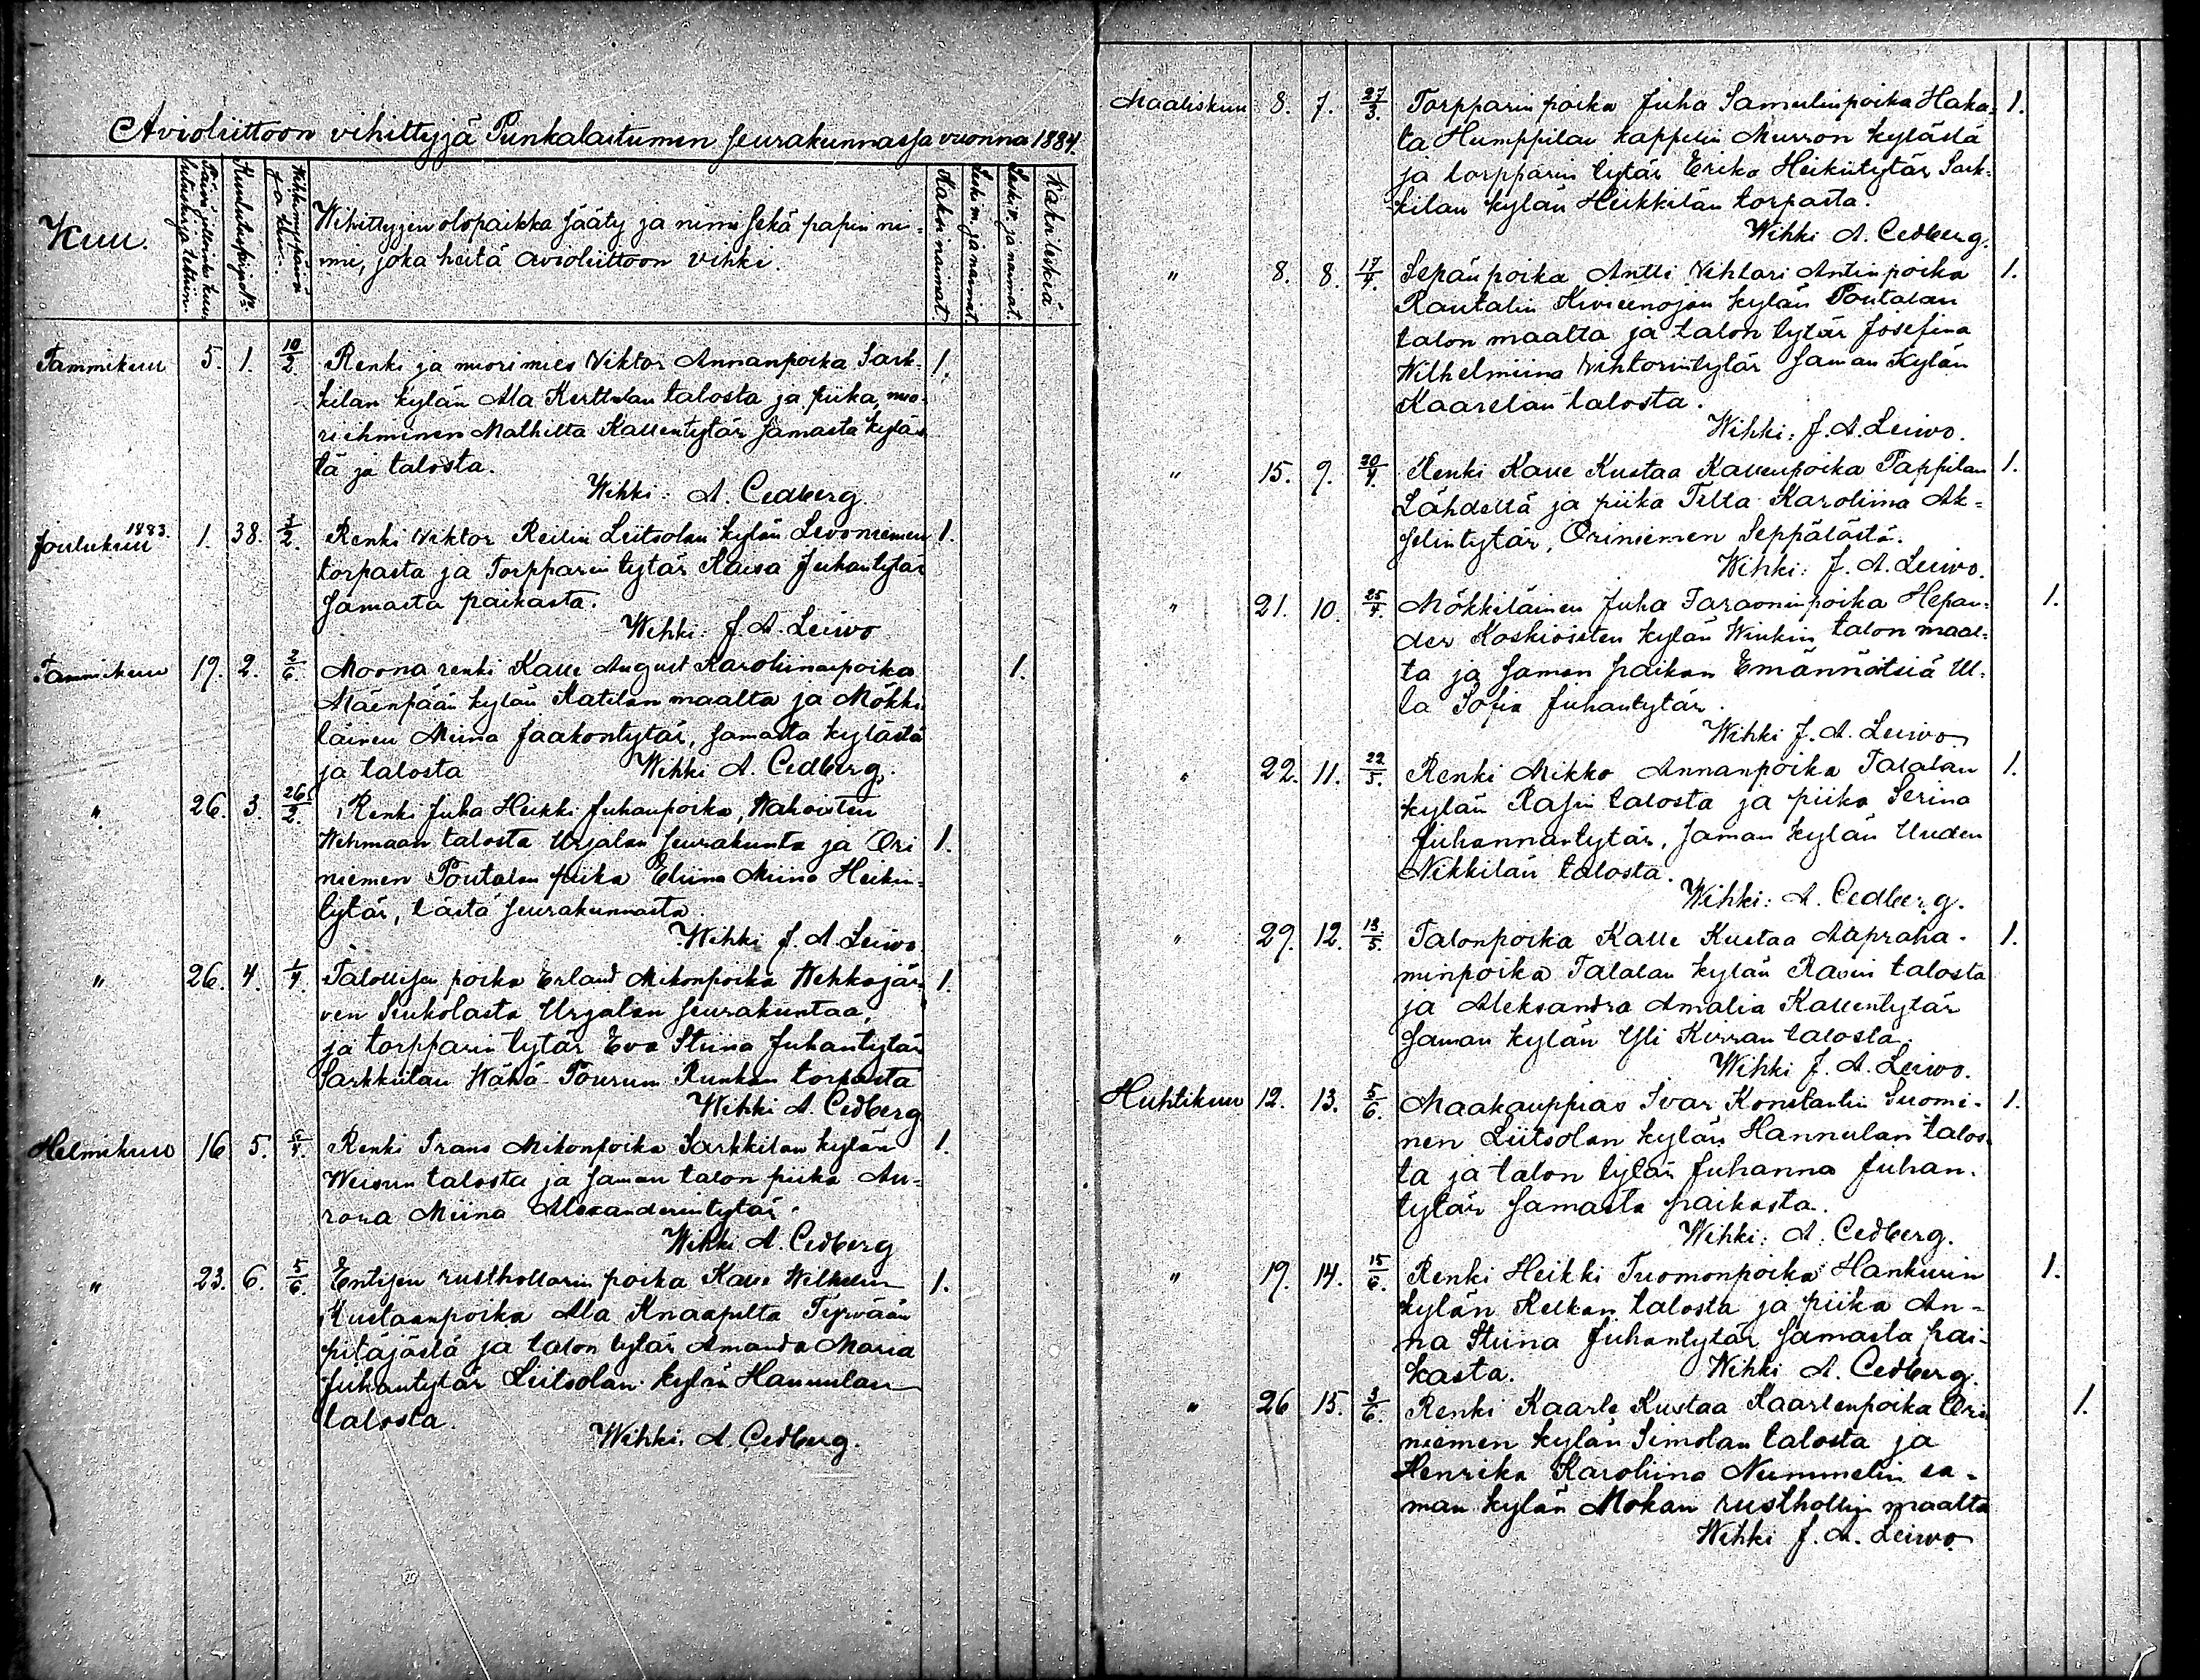 Avioliittoon vihittyjä Punkalaitumen seurakunnassa vuonna 1884.
Kuu.
Päivä jollenka kuulutuskirja tehtiin
Kuulutuskirja No.
Vihkimypäivä ja kuu.
Wihittyjen olopaikka sääty ja nimi sekä papin ni-
mi, joka heitä avioliittoon vihki.
Kaksi naimat.
Leski m. ja naimat.
Leski v. ja naimat.
Kaksi leskiä
Tammikuu 5. 1. 10/2. Renki ja nuorimies Viktor Annanpoika Sark- 1.
kilan kylän Ala Kerttulan talosta ja piika, nuo-
ri ihminen Mathilta Kallentytär samasta kyläs
tä ja talosta.
Wihki: A. Cedberg.
Joulukuu 1883. 1. 38. 3/2. Renki Viktor Reilin Liitsolan kylän Levoniemen 1.
torpasta ja Torpparin tytär Kaisa Juhantytär
samasta paikasta.
Wihki: J. A. Leiwo
Tammikuu 19. 2. 2/6. Moona renki Kalle August Karoliinanpoika 1.
Mäenpään kylän Katilan maalta ja Mökki
läinen Miina Jaakontytär, samasta kylästä
ja talosta Wihki A. Cedberg.
" 26. 3. 26/2. Renki Juha Heikki Juhanpoika, Nahoisten
Wehmaan talosta Urjalan seurakunta ja Ori 1.
niemen Poutalan piika Eliina Miina Heikin-
tytär, tästä seurakunnasta.
Wihki J. A. Leiwo.
" 26. 4. 1/4. Talollisen poika Erland Mikonpoika Wehkajär- 1.
ven Seukolasta Urjalan seurakuntaa,
ja torpparin tytär Eva Stiina Juhantytär
Sarkkilan Wähä Pourun Runkan torpasta
Wihki A. Cedberg
Helmikuu 16 5. 6/4. Renki Frans Mikonpoika Sarkkilan kylän 1.
Weisun talosta ja saman talon piika Au-
rora Miina Alexanderintytär.
Wihki A. Cedberg
" 23. 6. 5/6. Entisen rusthollarin poika Kalle Wilhelm 1.
Kustaanpoika Ala Knaapilta Tyrvään
pitäjästä ja talon tytär Amanda Maria
Juhantytär Liitsolan kylän Hannulan
talosta.
Wihki. A. Cedberg.
Maaliskuu 8. 7. 27/3. Torpparin poika Juha Samulinpoika Haka- 1.
ta Humppilan kappelin Murron kylästä
ja torpparin tytär Erika Heikintytär Sark-
kilan kylän Heikkilän torpasta.
Wihki A. Cedberg.
" 8. 8. 17/4. Sepän poika Antti Vihtari Antinpoika 1.
Rautalin Kivisenojan kylän Poutalan
talon maalta ja talon tytär Josefina
Wilhelmiina Vihtorintytär saman kylän
Kaarelan talosta.
Wihki: J. A. Leiwo.
" 15. 9. 20/4. Renki Kalle Kustaa Kallenpoika Pappilan 1.
Lähdeltä ja piika Tilta Karoliina Ak-
selintytär, Oriniemen Seppälästä.
Wihki: J. A. Leiwo.
" 21. 10. 25/4. Mökkiläinen Juha Faraoninpoika Hepan- 1.
der Koskioisten kylän Winkin talon maal-
ta ja saman paikan Emännöitsiä Ul-
la Sofia Juhantytär.
Wihki J. A. Leiwo.
" 22. 11. 22/5. Renki Mikko Annanpoika Talalan 1.
kylän Rasin talosta ja piika Serina
Juhannantytär, saman kylän Uuden
Nikkilän talosta.
Wihki: A. Cedberg.
" 29. 12. 13/5. Talonpoika Kalle Kustaa Aapraha- 1.
minpoika Talalan kylän Rasin talosta
ja Aleksandra Amalia Kallentytär
saman kylän Yli Kirran talosta.
Wihki J. A. Leiwo.
Huhtikuu 12. 13. 5/6. Maakauppias Ivar Konstantin Suomi- 1.
nen Liitsolan kylän Hannulan talos-
ta ja talon tytär Juhanna Juhan-
tytär samasta paikasta.
Wihki: A. Cedberg.
" 19. 14. 15/6. Renki Heikki Tuomonpoika Hankurin 1.
kylän Kelkan talosta ja piika An-
na Stiina Juhantytär samasta pai-
kasta. Wihki A. Cedberg.
" 26 15. 3/6. Renki Kaarle Kustaa Kaarlenpoika Ori 1.
niemen kylän Simolan talosta ja
Henrika Karoliina Nummelin sa-
man kylän Mokan rusthollin maalta
Wihki J. A. Leiwo.